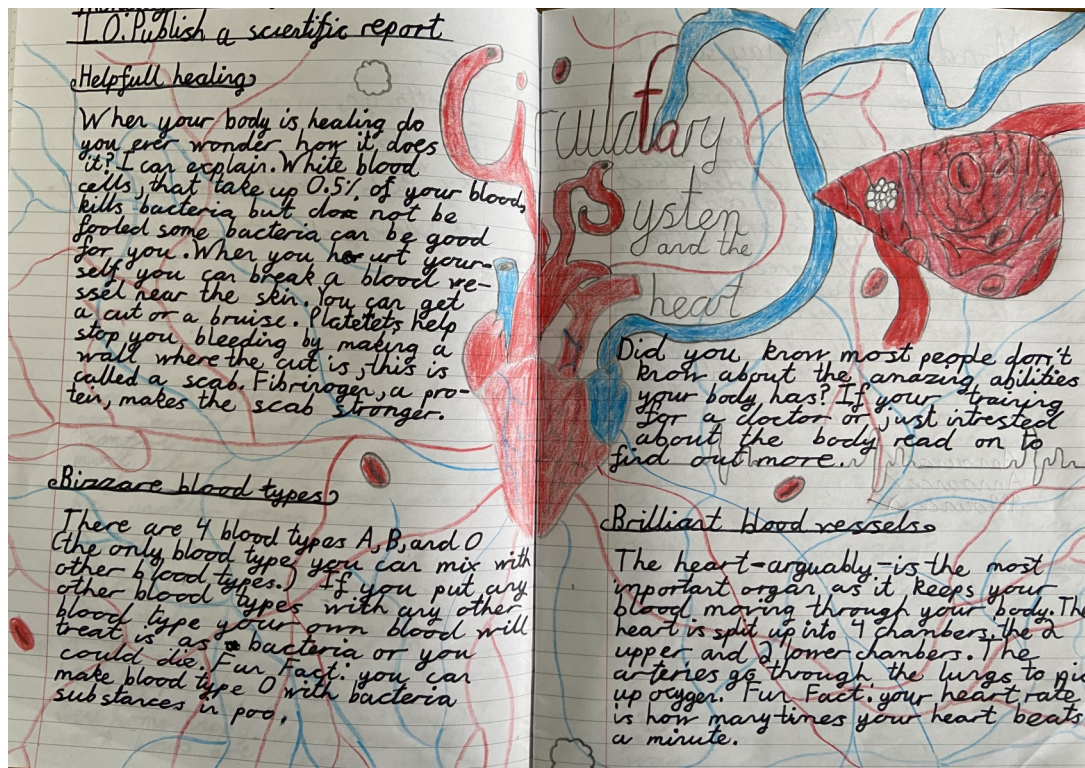 L.O. Publish a scientific report
Helpfull healing
When your body is healing do
you ever wonder how it does
it? I can explain. White blood
cells, that take up 0.5% of your blood,
kills bacteria but do not be
fooled some bacteria can be good
for you. When you hurt your-
self you can break a blood ve-
ssel near the skin. You can get
a cut or a bruise. Platetets help
stop you bleeding by making a
wall where the cut is, this is
called a scab. Fibrinogen, a pro-
tein, makes the scab stronger.
Bizzare blood types
There are 4 blood types A, B, and O
(the only blood type you can mix with
other blood types.) If you put any
other blood types with any other
blood type your own blood will
treat is as bacteria or you
could die. Fun Fact: you can
make blood type O with bacteria
substances in poo.
Circulatary
System
and the
heart
Did you know most people don't
know about the amazing abilities
your body has? If your training
for a doctor or just intrested
about the body read on to
find out more.
Brilliant blood vessels
The heart-arguably-is the most
important organ as it keeps your
blood moving through your body. The
heart is split up into 4 chambers, the 2
upper and 2 lower chambers. The
arteries go through the lungs to
up oxygen. Fun Fact: your heart rate
is how many times your heart beats
a minute.